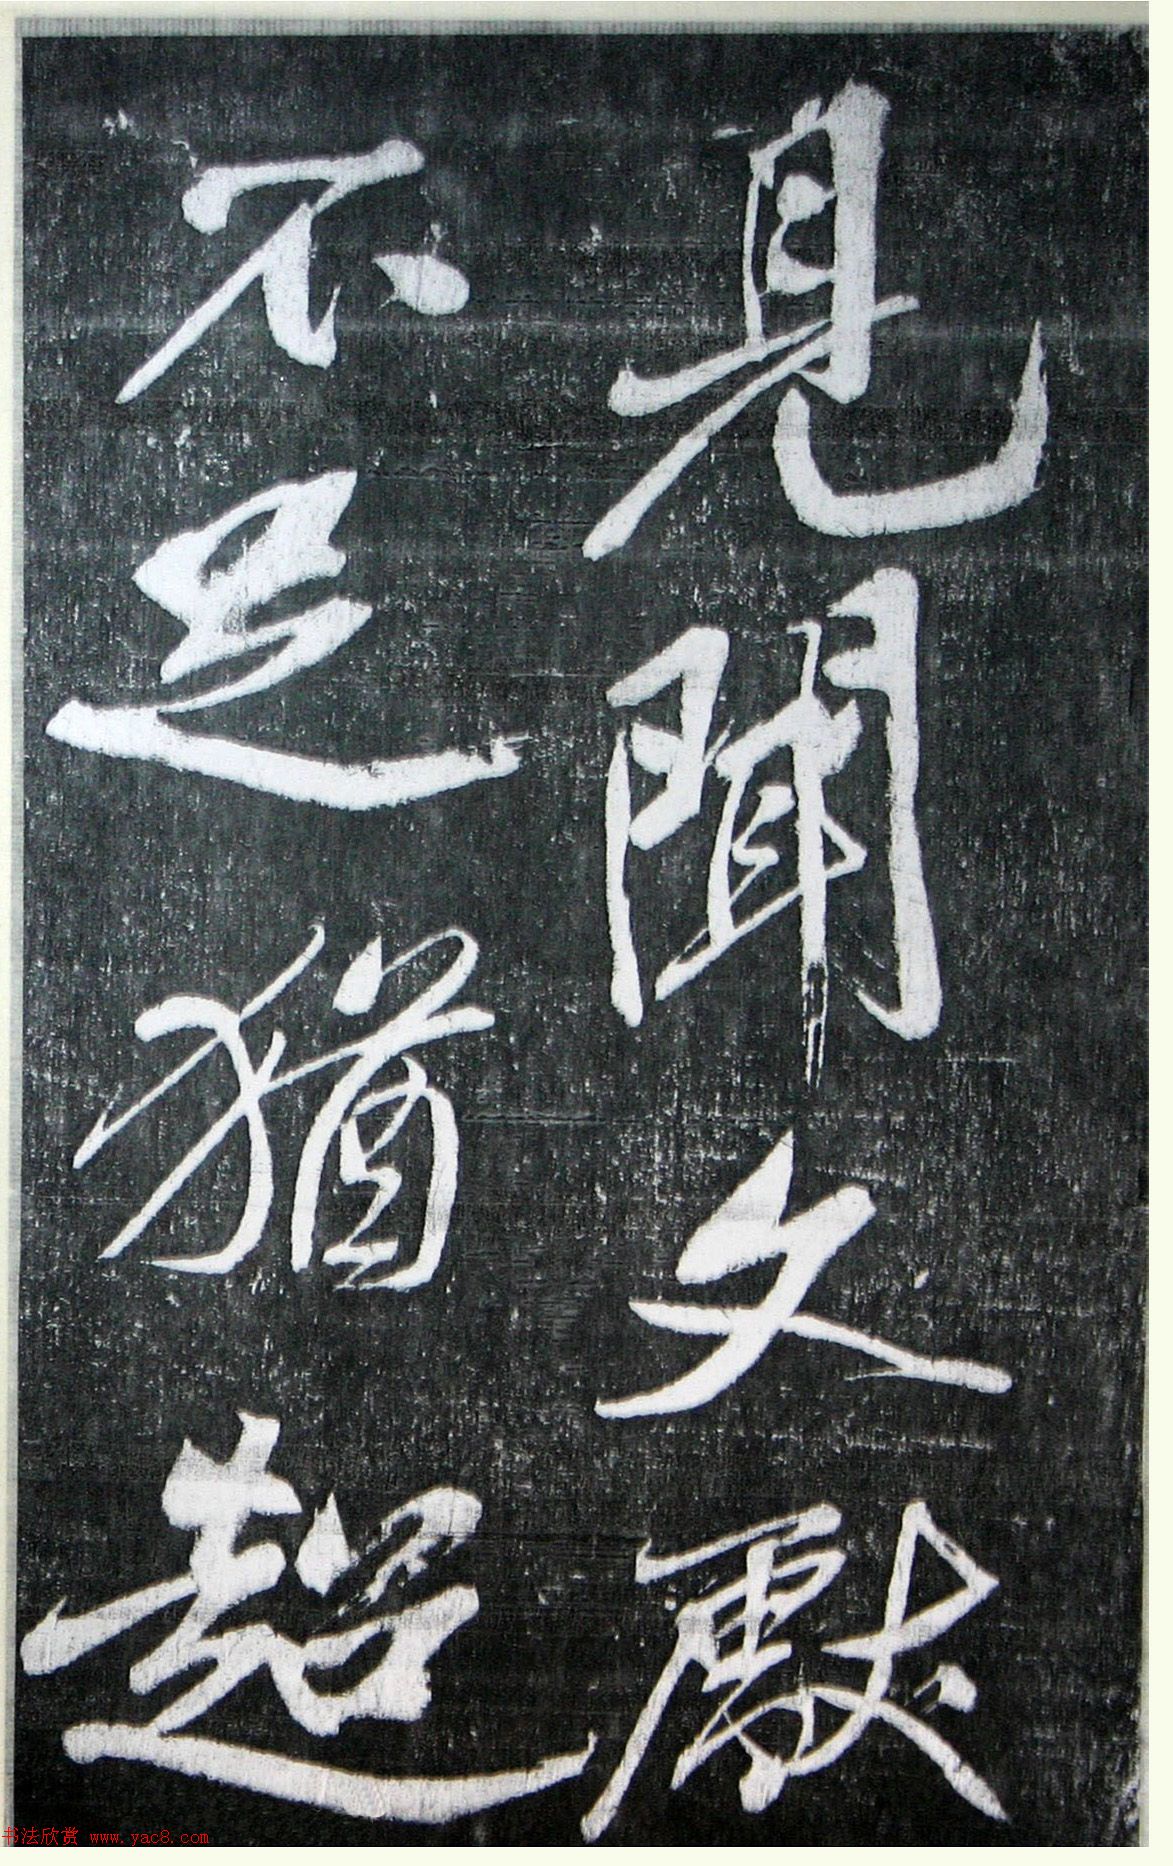 見聞文獻
不足猶超
书法欣赏 www.yac8.com